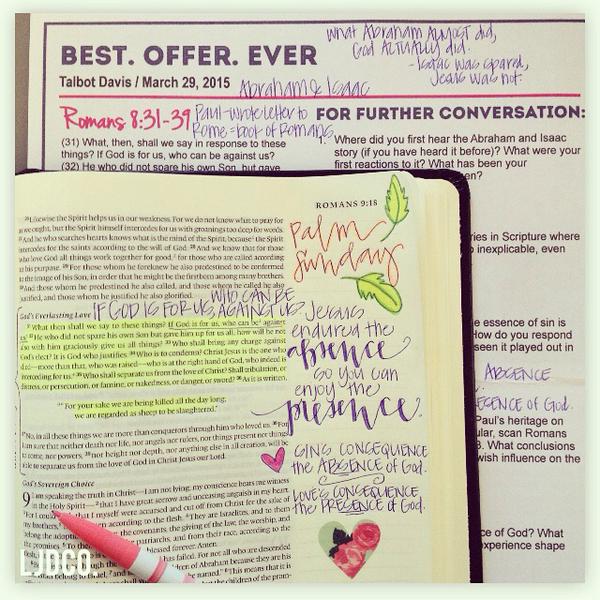 BEST. OFFER. EVER
Talbot Davis / March 29, 2015
Abraham & Isaac
What Abraham ALMOST did,
God ACTUALLY did.
- Isaac was spared,
Jesus was not.
Romans 8:31-39
Paul - wrote letter to
Rome = book of Romans
(31) What, then, shall we say in response to these
things? If God is for us, who can be against us?
(32) He who did not spare his own Son, but gave
FOR FURTHER CONVERSATION:
Where did you first hear the Abraham and Isaac
story (if you have heard it before)? What were your
first reactions to it? What has been your
en?
ries in Scripture where
inexplicable, even
e essence of sin is
How do you respond
seen it played out in
ABSENCE
ESENCE of God.
Paul's heritage on
ular, scan Romans
8. What conclusions
wish influence on the
ce of God? What
experience shape
ROMANS 9:18
26 Likewise the Spirit helps us in our weakness. For we do not know what to pray for
as we ought, but the Spirit himself intercedes for us with groanings too deep for words.
27 And he who searches hearts knows what is the mind of the Spirit, because the Spirit
intercedes for the saints according to the will of God. 28 And we know that for those
who love God all things work together for good, for those who are called according
to his purpose. 29 For those whom he foreknew he also predestined to be conformed
to the image of his Son, in order that he might be the firstborn among many brothers.
30 And those whom he predestined he also called, and those whom he called he also
justified, and those whom he justified he also glorified.
Palm
Sunday
God's Everlasting Love
IF GOD IS FOR US, WHO CAN BE AGAINST US
31 What then shall we say to these things? If God is for us, who can be against
us? 32 He who did not spare his own Son but gave him up for us all, how will he not
also with him graciously give us all things? 33 Who shall bring any charge against
God's elect? It is God who justifies. 34 Who is to condemn? Christ Jesus is the one who
died—more than that, who was raised—who is at the right hand of God, who indeed is
interceding for us. 35 Who shall separate us from the love of Christ? Shall tribulation, or
distress, or persecution, or famine, or nakedness, or danger, or sword? 36 As it is written,
"For your sake we are being killed all the day long;
we are regarded as sheep to be slaughtered."
Jesus
endured the
absence
so you can
enjoy the
presence.
37 No, in all these things we are more than conquerors through him who loved us. 38 For
I am sure that neither death nor life, nor angels nor rulers, nor things present nor things
to come, nor powers, 39 nor height nor depth, nor anything else in all creation, will be
able to separate us from the love of God in Christ Jesus our Lord.
SIN'S CONSEQUENCE
the ABSENCE of God.
LOVE'S CONSEQUENCE
the PRESENCE of God.
God's Sovereign Choice
9 I am speaking the truth in Christ—I am not lying; my conscience bears me witness
in the Holy Spirit— 2 that I have great sorrow and unceasing anguish in my heart.
LJDCO